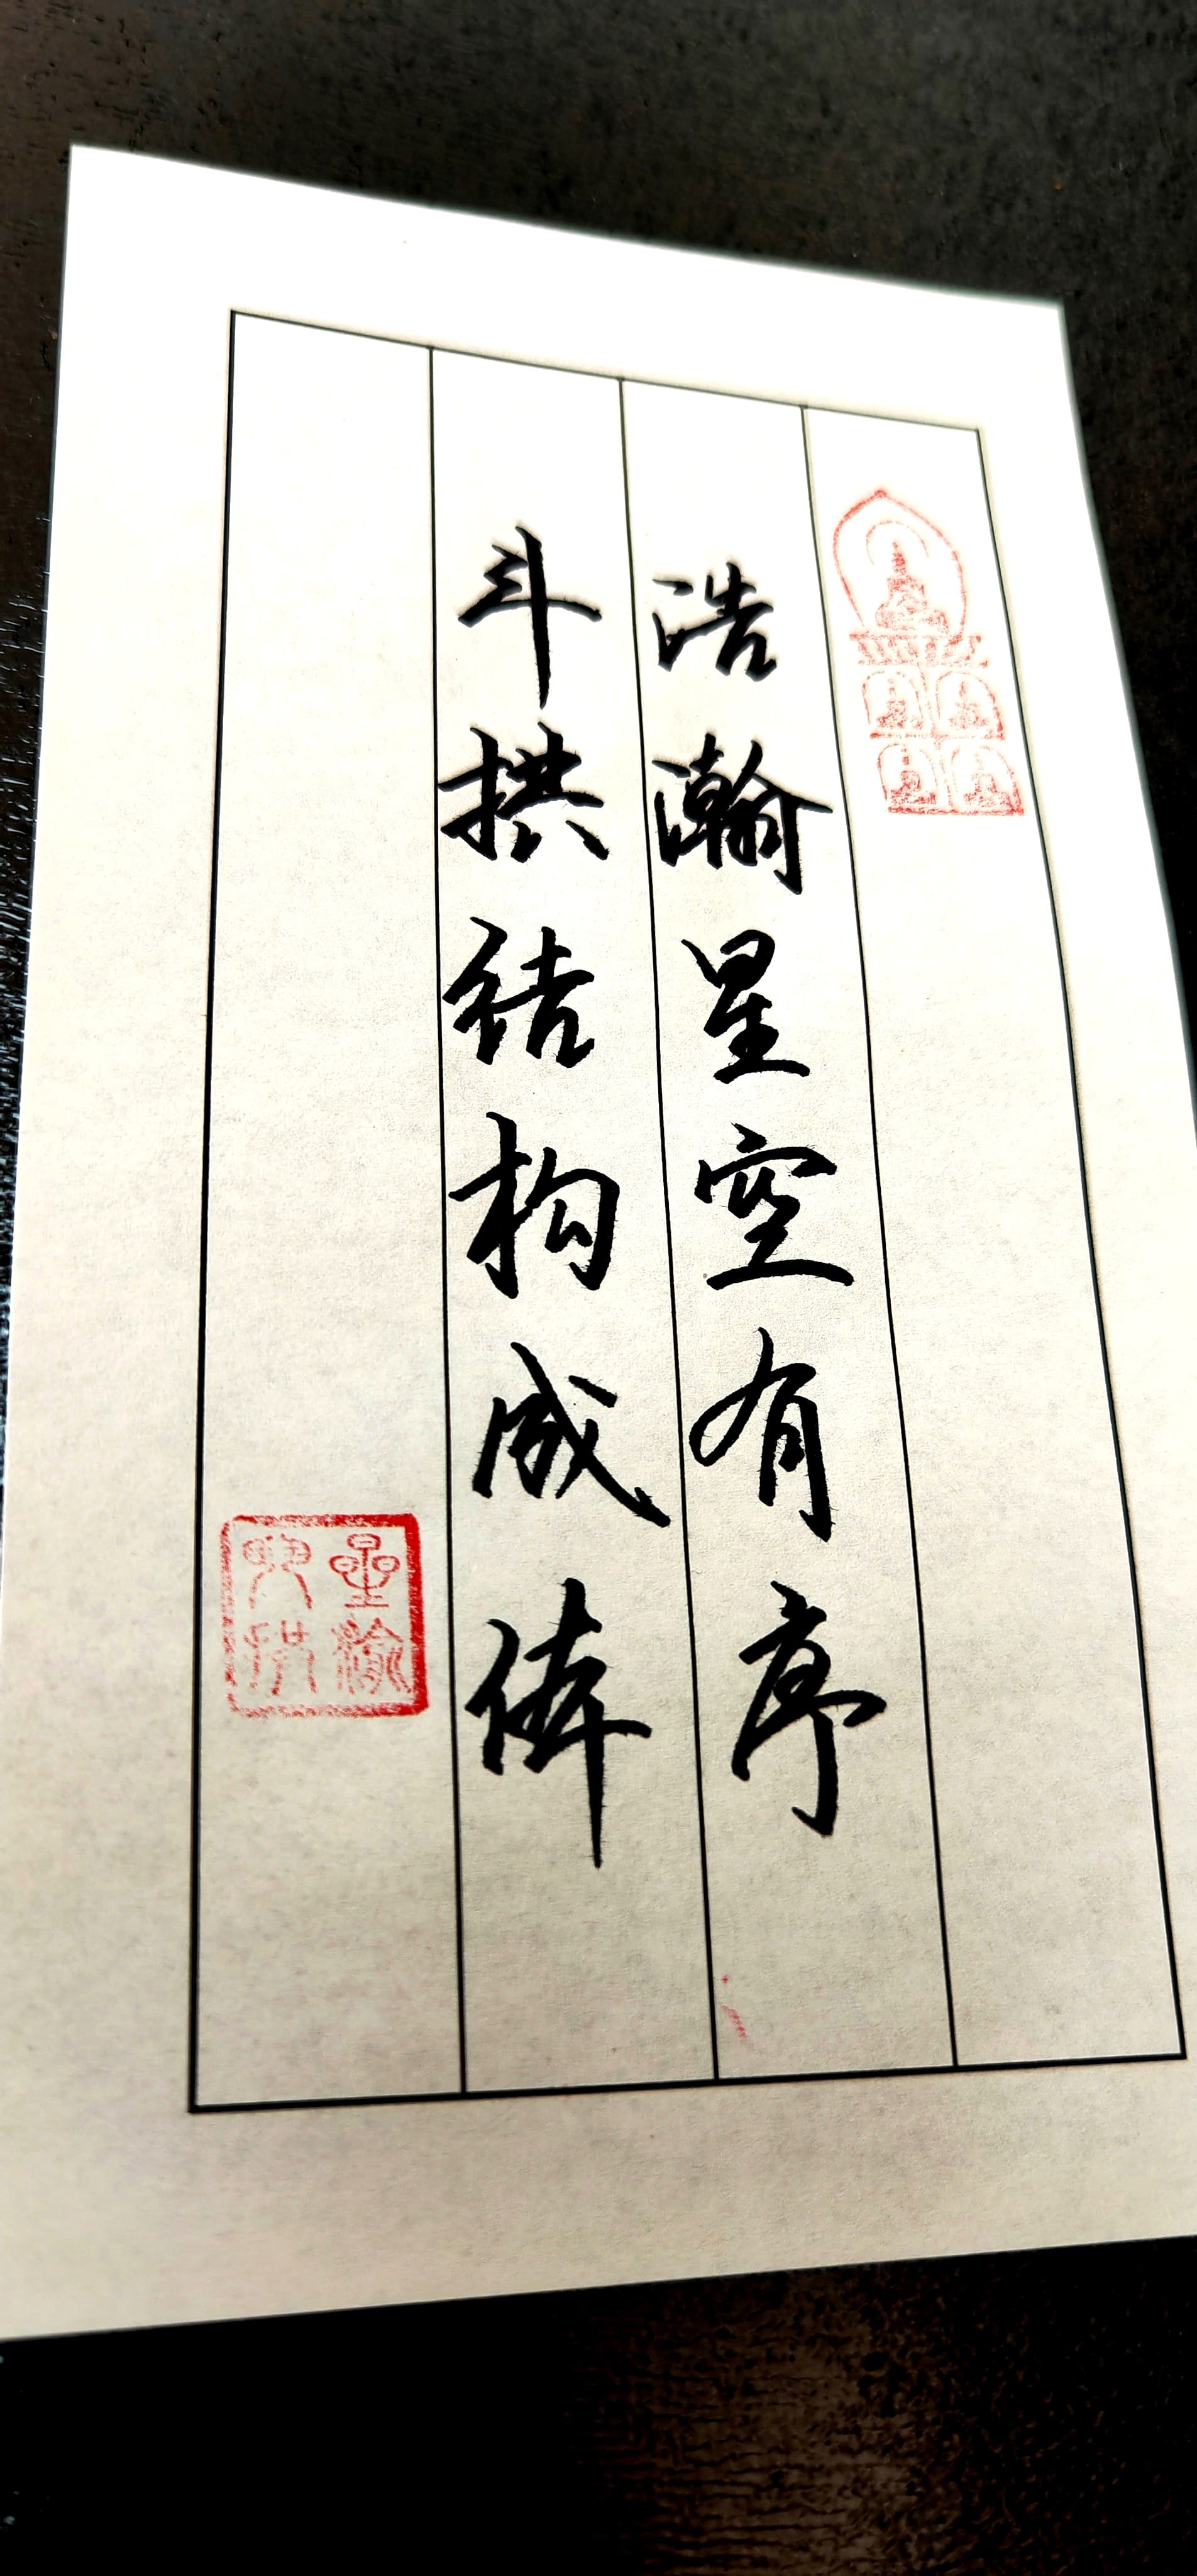 浩瀚星空有序
斗拱结构成体